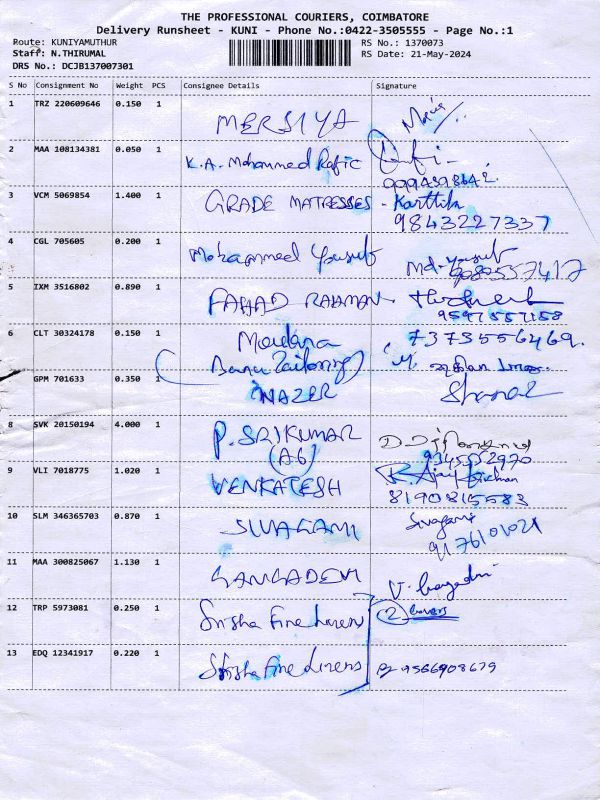 THE PROFESSIONAL COURIERS, COIMBATORE
Delivery Runsheet - KUNI - Phone No.:0422-3505555 - Page No.:1
Route: KUNIYAMUTHUR RS No.: 1370073
Staff: N.THIRUMAL RS Date: 21-May-2024
DRS No.: DCJB137007301
S No Consignment No Weight PCS Consignee Details Signature
1 TRZ 220609646 0.150 1 MERSIYA
2 MAA 108134381 0.050 1 K.A. Mohammed Rafic
3 VCM 5069854 1.400 1 GRADE MATRESSES - Karthik
9843227337
4 CGL 705605 0.200 1 Mohammed Yousuf Md-yousuf
5 IXM 3516802 0.890 1 FAHAD RAHMAN
6 CLT 30324178 0.150 1 Maulana 7373556469.
(Banu Tailoring)
GPM 701633 0.350 1 NAZER
8 SVK 20150194 4.000 1 P. SRIKUMAR
(A6) 9345552970
9 VLI 7018775 1.020 1 VENKATESH
8190815583
10 SLM 346365703 0.870 1 SIVAGAMI Sivagami
11 MAA 300825067 1.130 1 GANGADEVI
12 TRP 5973081 0.250 1 Srisha Fine Linen 2 covers
13 EDQ 12341917 0.220 1 Srisha Fine Linens 9566908679